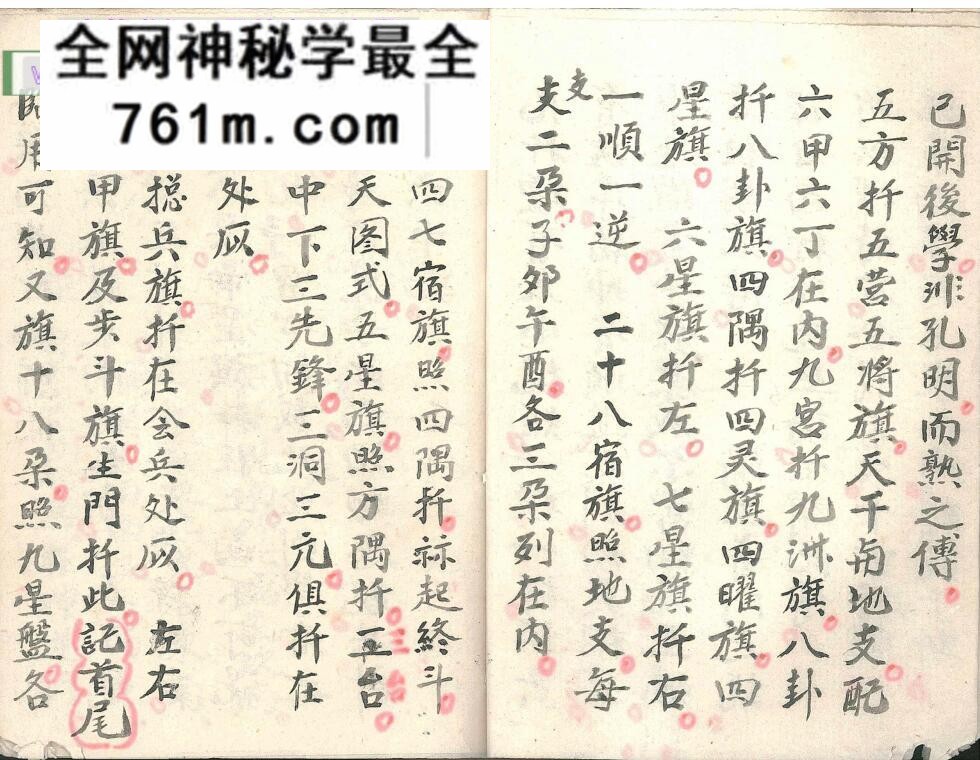 全网神秘学最全
761m.com
己開後學訓孔明而熟之傳
五方扦五营五將旗天干与地支配
六甲六丁在内九宫扦九洲旗八卦
扦八卦旗四隅扦四灵旗四曜旗四
星旗 六星旗扦左 七星旗扦右
一順一逆 二十八宿旗照地支每
支二朵子卯午酉各三朵列在内
支
四七宿旗照四隅扦 起終斗
天图式五星旗照方隅扦 台
三台
中下三先鋒三洞三元俱扦在
处
捴兵旗扦在会兵处 左右
甲旗及步斗旗生門扦此記首尾
用可知又旗十八朵照九星盤各